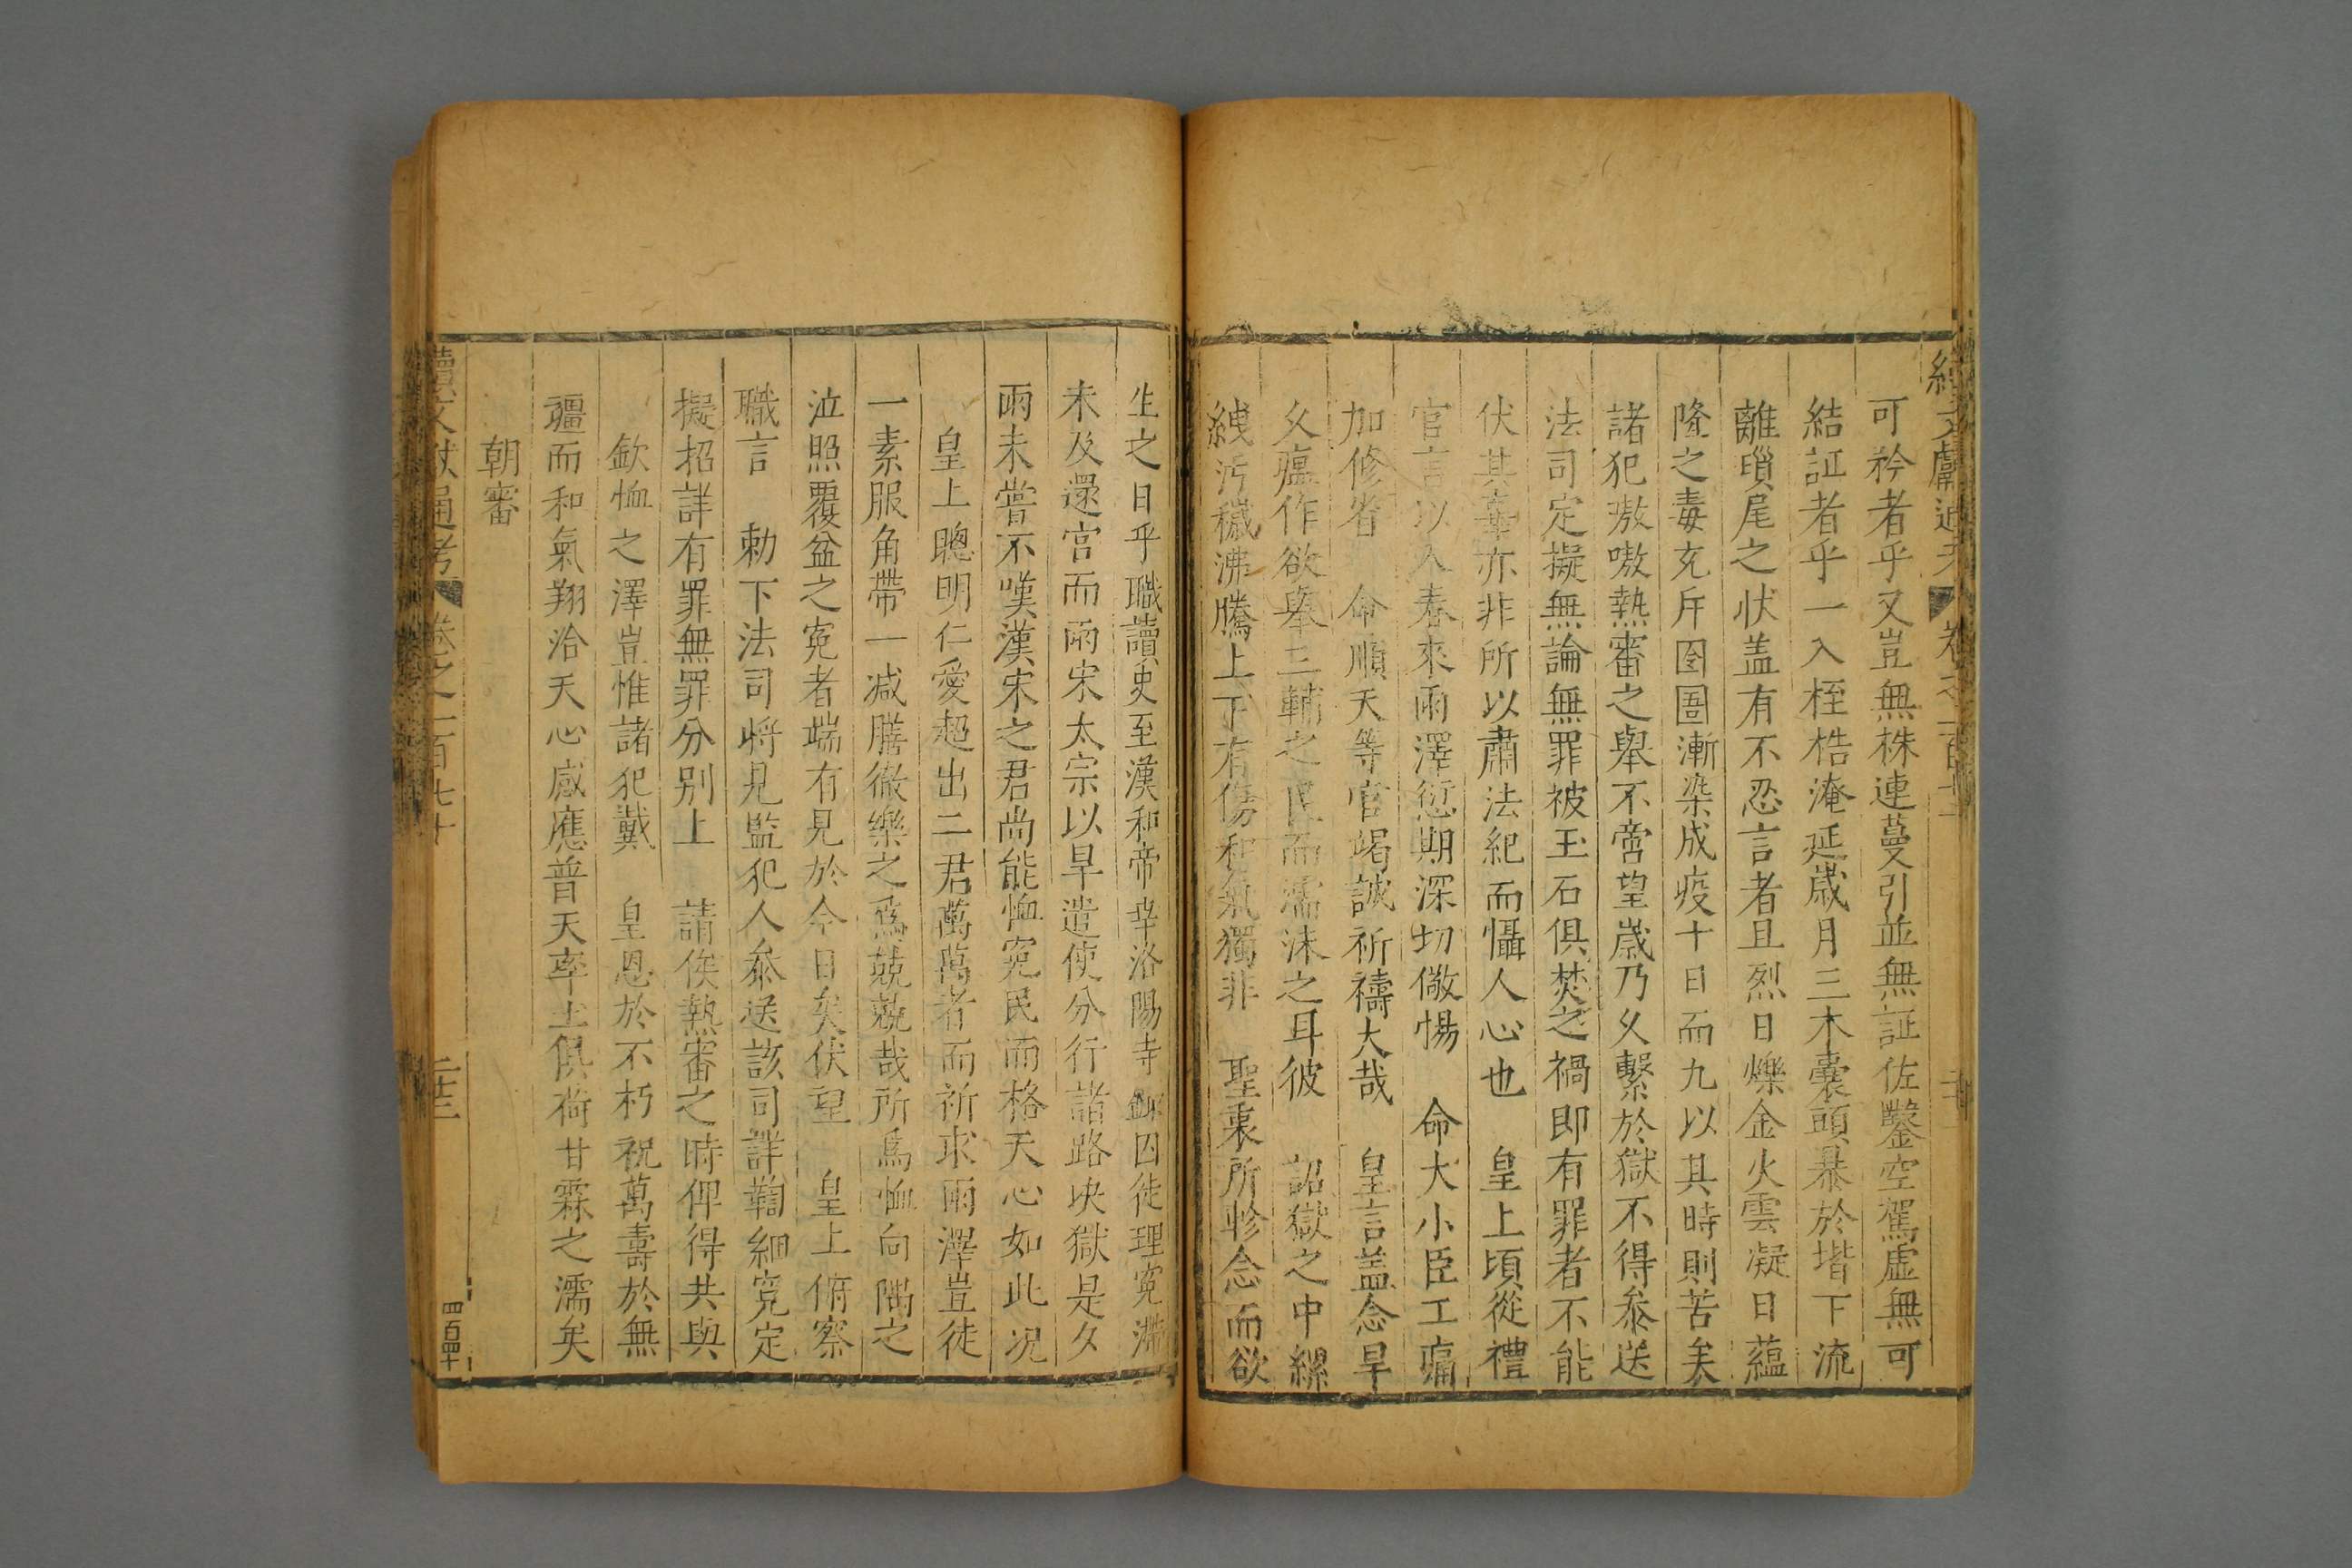 可矜者乎又豈無株連蔓引並無証佐鑿空駕虛無可
結証者乎一入桎梏淹延歲月三木囊頭暴於堦下流
離瑣尾之状盖有不忍言者且烈日爍金火雲凝日蘊
隆之毒充斥囹圄漸染成疫十日而九以其時則苦矣
諸犯嗷嗷熱審之舉不啻望歲乃乆繫於獄不得叅送
法司定擬無論無罪被玉石俱焚之禍即有罪者不能
伏其辜亦非所以肅法紀而懾人心也 皇上頃從禮
官言以入春來雨澤愆期深切儆惕 命大小臣工痛
加修省 命順天等官竭誠祈禱大哉 皇言盖念旱
乆瘟作欲舉三輔之民而濡沫之耳彼 詔獄之中縲
絏汚穢沸騰上下有傷和氣獨非 聖衷所軫念而欲
生之日乎職讀史至漢和帝幸洛陽寺錄囚徒理寃滯
未及還宮而雨宋太宗以旱遣使分行諸路决獄是夕
雨未嘗不嘆漢宋之君尚能恤寃民而格天心如此况
皇上聰明仁愛超出二君萬萬者而祈求雨澤豈徒
一素服角帶一减膳徹樂之爲兢兢哉所爲恤向隅之
泣照覆盆之寃者端有見於今日矣伏望 皇上俯察
職言 勅下法司將見監犯人叅送該司詳鞫細究定
擬招詳有罪無罪分别上 請俟熱審之時俾得共與
欽恤之澤豈惟諸犯戴 皇恩於不朽祝萬壽於無
疆而和氣翔洽天心感應普天率土俱荷甘霖之濡矣
朝審
續文獻通考 卷之一百七十 二十三 四百四十